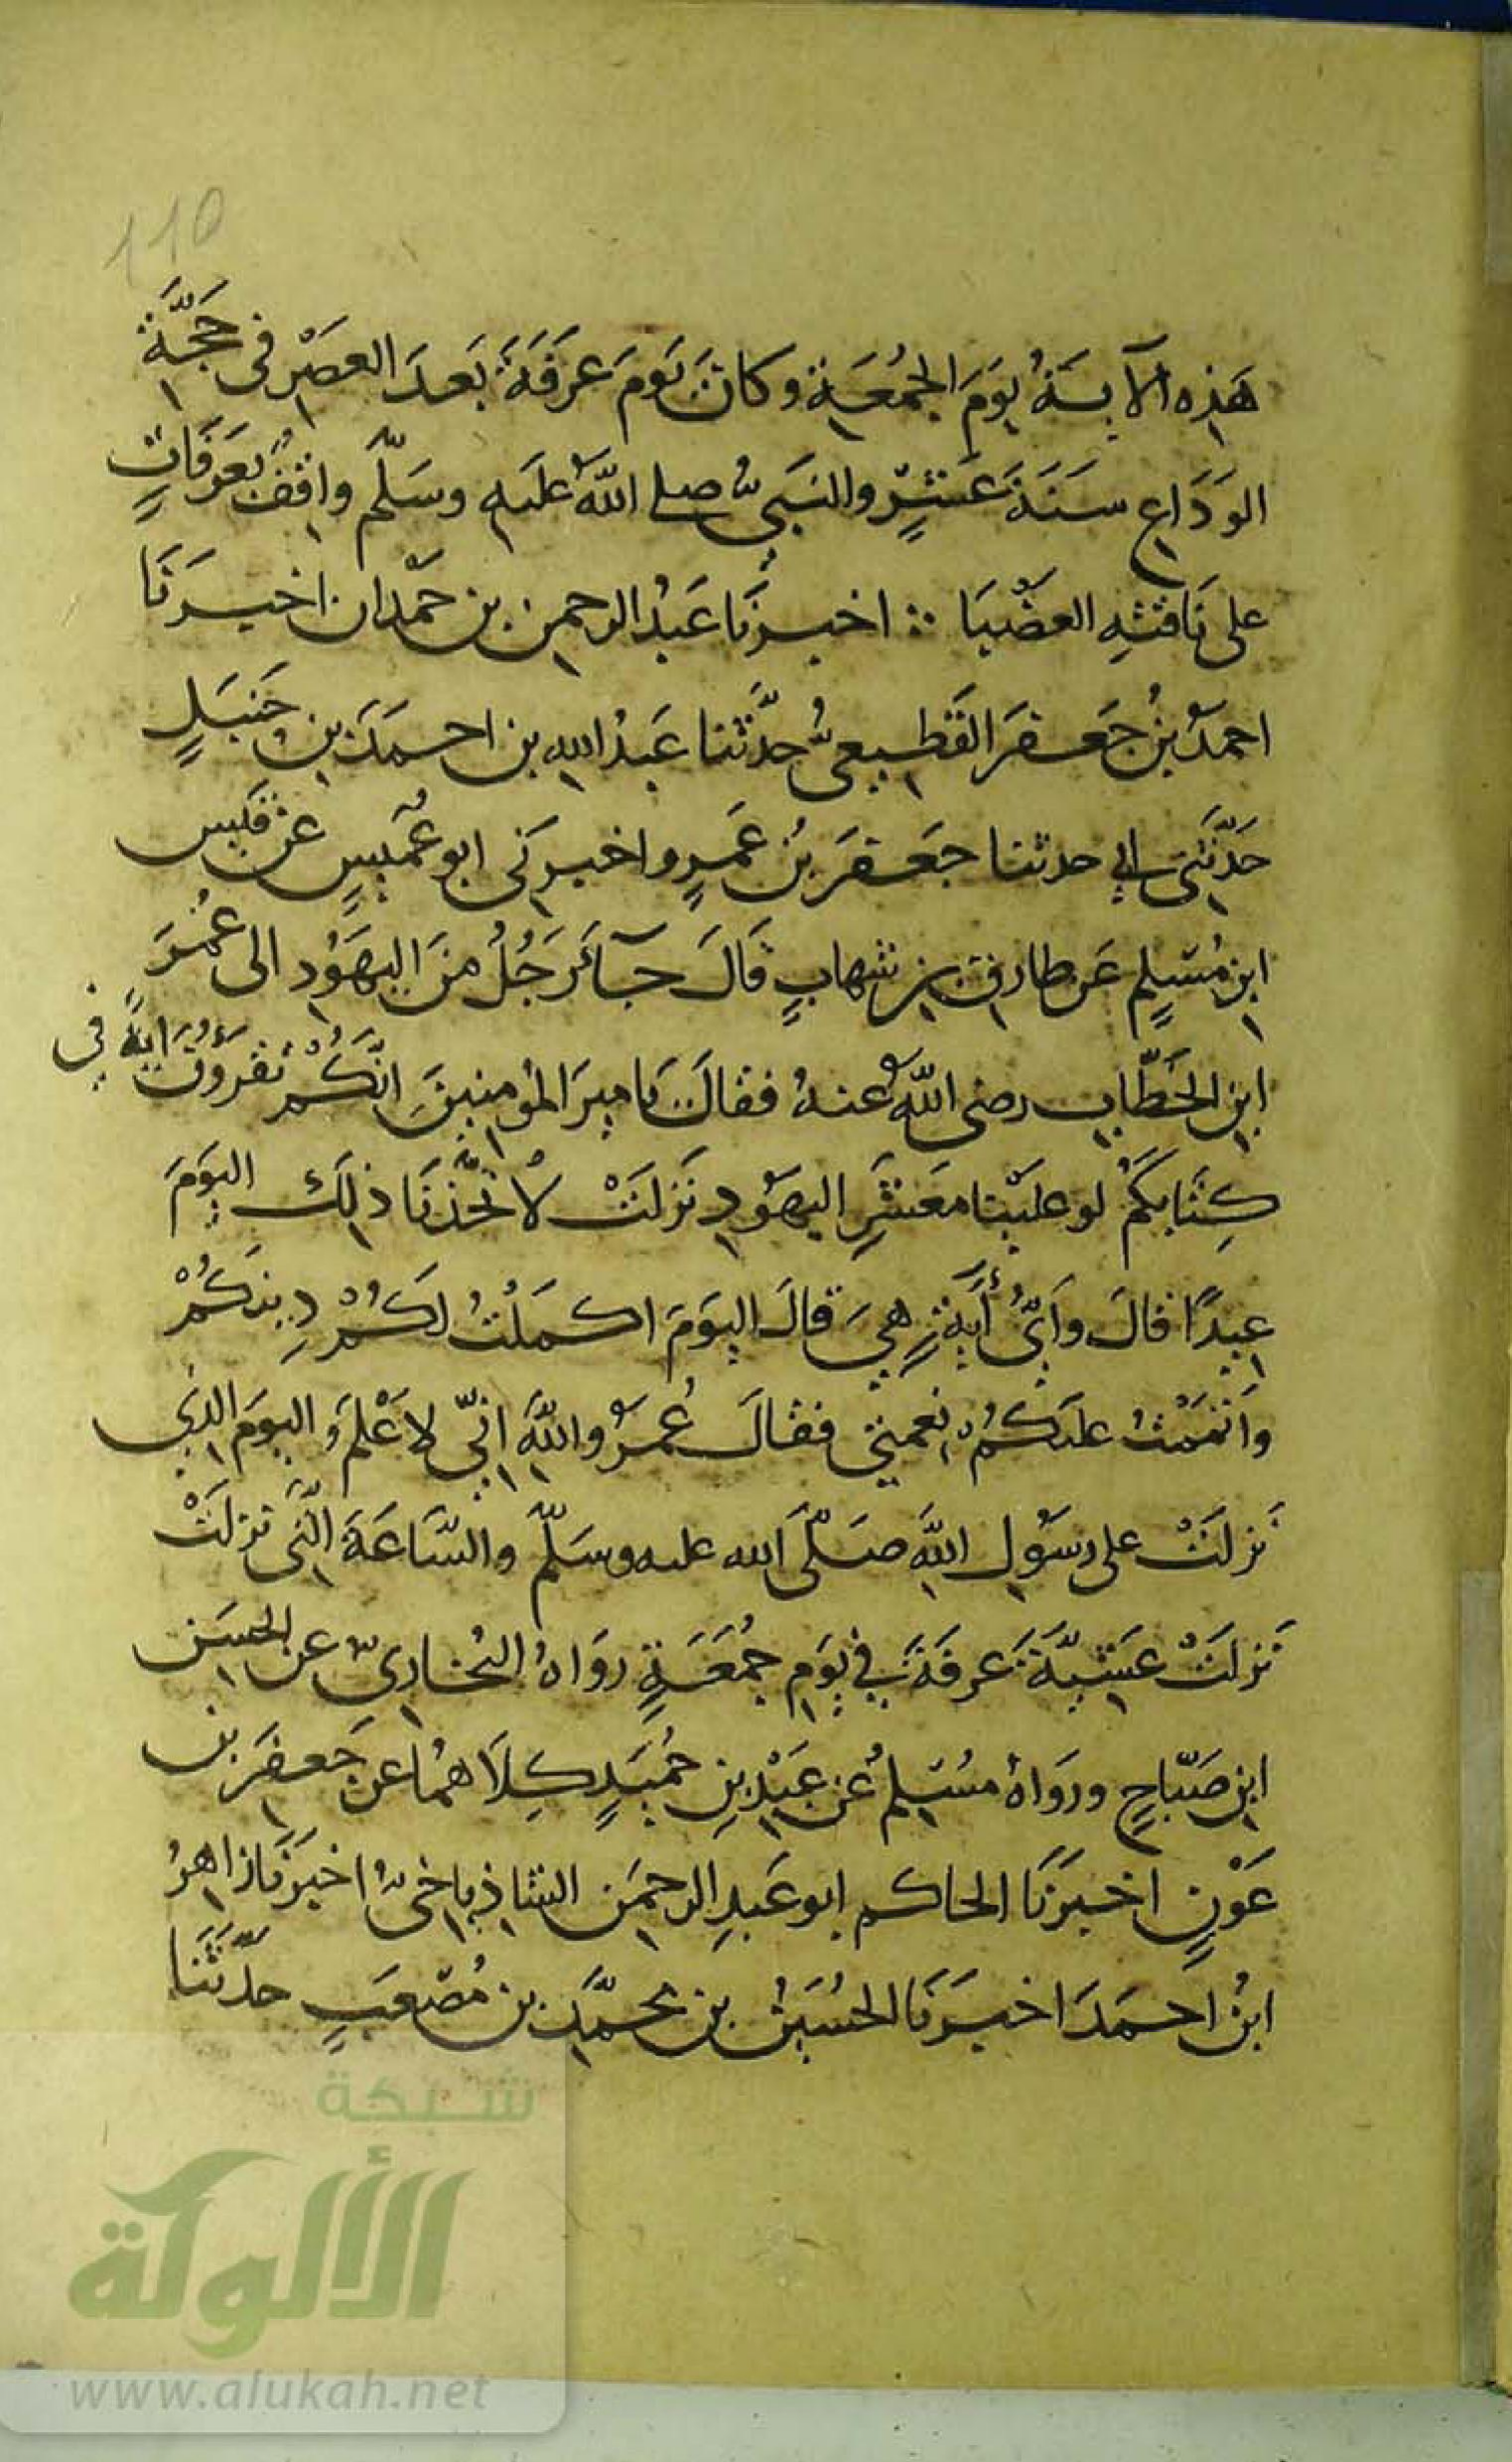 110
هَذِهِ الآيَةُ يَومَ الجُمُعَةِ وكانَ يَومَ عَرَفَةَ بَعدَ العصْرِ فى حَجَّةِ
الوَدَاعِ سَنَةَ عَشْرٍ والنبىُّ صلى اللهُ علَيهِ وسَلَّم واقفٌ بعَرَفَاتٍ
على نَاقتهِ العضْبَا ∴ اخبرنَا عَبْدُ الرحمن بن حَمْدان اخبرَنَا
احمدُ بنُ جَعفَر القَطيعىُّ حدَّثنا عَبْدُ الله بن احمَدَ بنِ حَنبَلٍ
حَدَّثَنى ابي حدثنا جَعفَرَ بنُ عَمرٍو اخبرَنى ابو عُمَيسٍ عن قيس
ابنِ مُسْلِمٍ عَن طارق بن شهابٍ قَالَ جَآءَ رَجُلٌ مِنَ اليهَوُد الى عُمَرَ
ابنِ الخَطَّابِ رضى اللهُ عنهُ فقالَ يَا ميرَ المؤمنينَ انَّكُمْ تقرَؤُنَ ايَةً فِي
كِتَابِكُمْ لو علَيْنا مَعشَرِ اليهَوُدِ نَزلَتْ لاُتخَّذنَا ذلِكَ اليَومَ
عِيدًا قالَ وأىُّ أيَةٍ هِيَ قالَ اليَومَ اكمَلْتُ لَكُمْ دِينكُمْ
وأتمَمْتُ علَيكُمْ نِعمَتِي فقالَ عُمَرُ واللهِ انِّي لاَعْلَمُ اليَومَ الذي
نَزلَتْ على رسَوُلِ اللهِ صَلَّى الله عليه وسَلَّم والسَّاعَةَ الَّتى نزلَتْ
نَزلَتْ عَشِيَّةَ عَرفَةَ فِي يَومِ جُمُعَةٍ روَاهُ البُخارِيّ عن الحسَنِ
ابنِ صَبّاحٍ وروَاهُ مسْلِمٌ عن عَبْدِ بنِ حُمَيدٍ كِلاَهُمَا عن جَعفَرِ بن
عَوْنٍ اخبَرَنَا الحاكم ابو عَبدِ الرحمَن الشاذياخىُّ اخبَرنَا زاهرُ
ابنُ احمَدَ اخبَرَنَا الحُسَينُ بن محمَّدِ بن مُصْعَبٍ حدَّثَنَا
شبكة
الألوكة
www.alukah.net